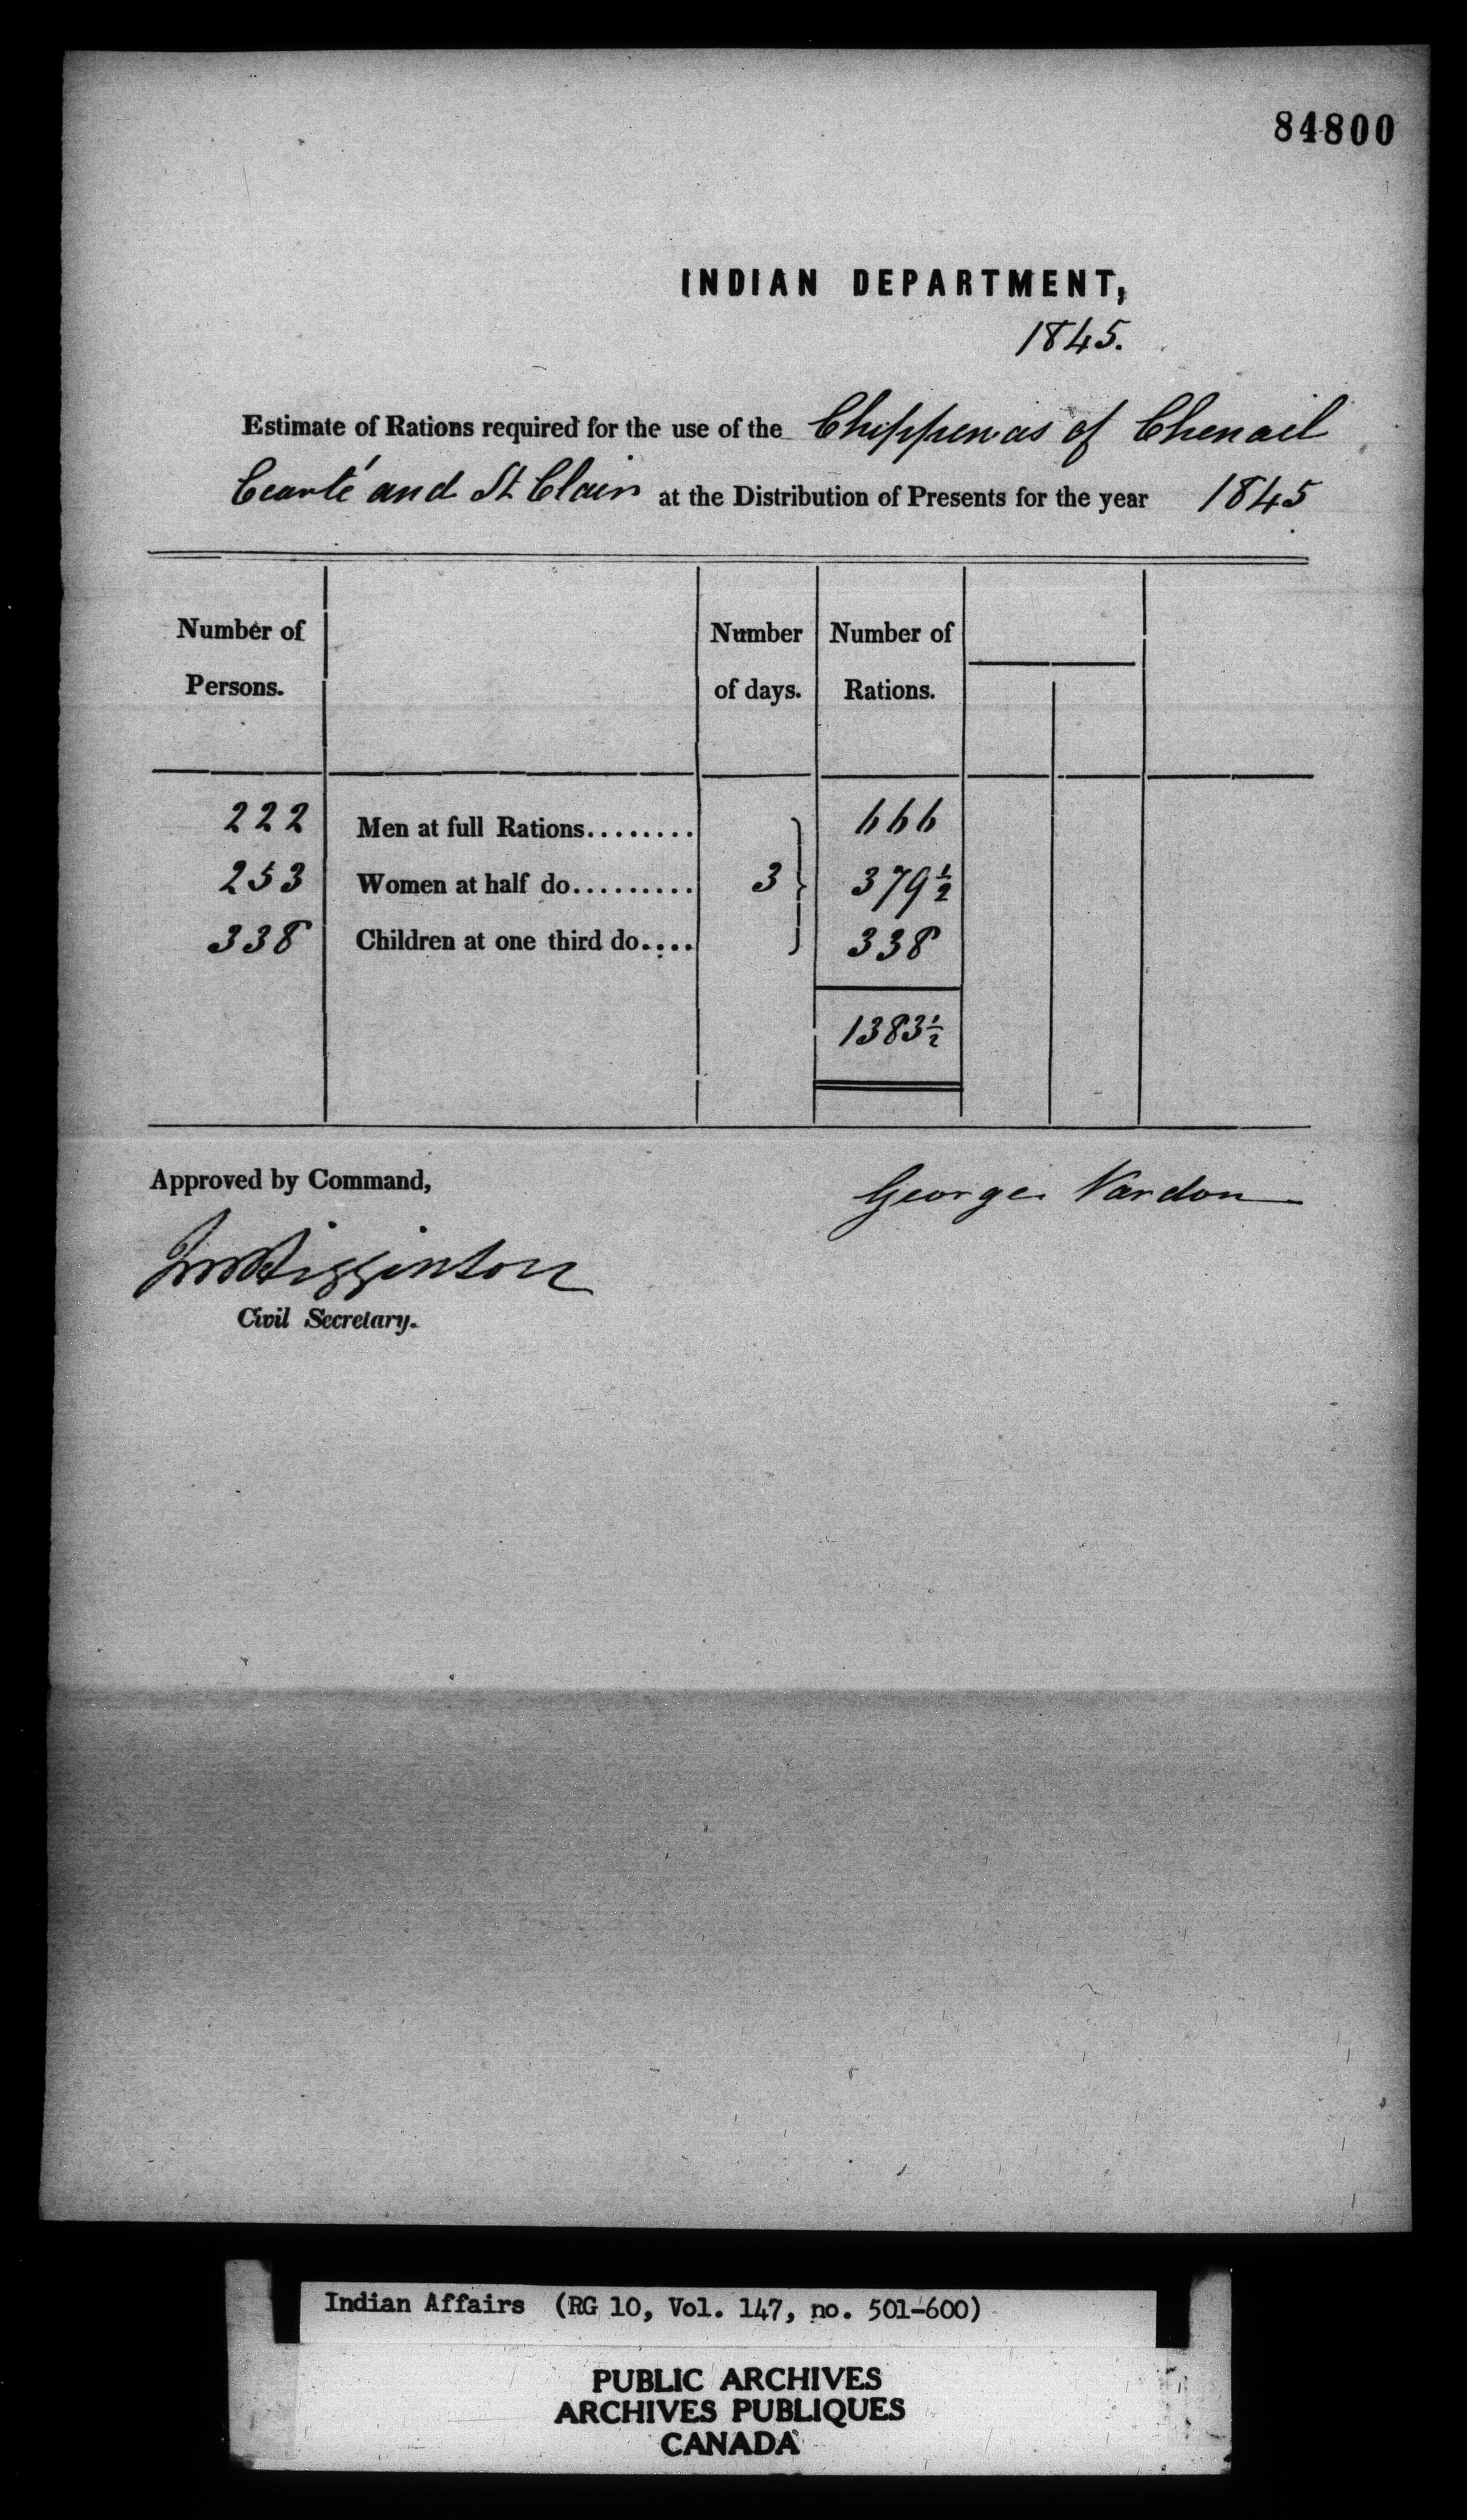 84800
INDIAN DEPARTMENT,
1845.
Estimate of Rations required for the use of the Chippewas of Chenail
Ecarté and St Clair at the Distribution of Presents for the year 1845
Number of Persons. Number of days. Number of Rations.
222 Men at full Rations........ 666
253 Women at half do......... 3 379½
338 Children at one third do.... 338
1383½
Approved by Command, George Vardon
JM Higginson
Civil Secretary.
Indian Affairs (RG 10, Vol. 147, no. 501-600)
PUBLIC ARCHIVES
ARCHIVES PUBLIQUES
CANADA